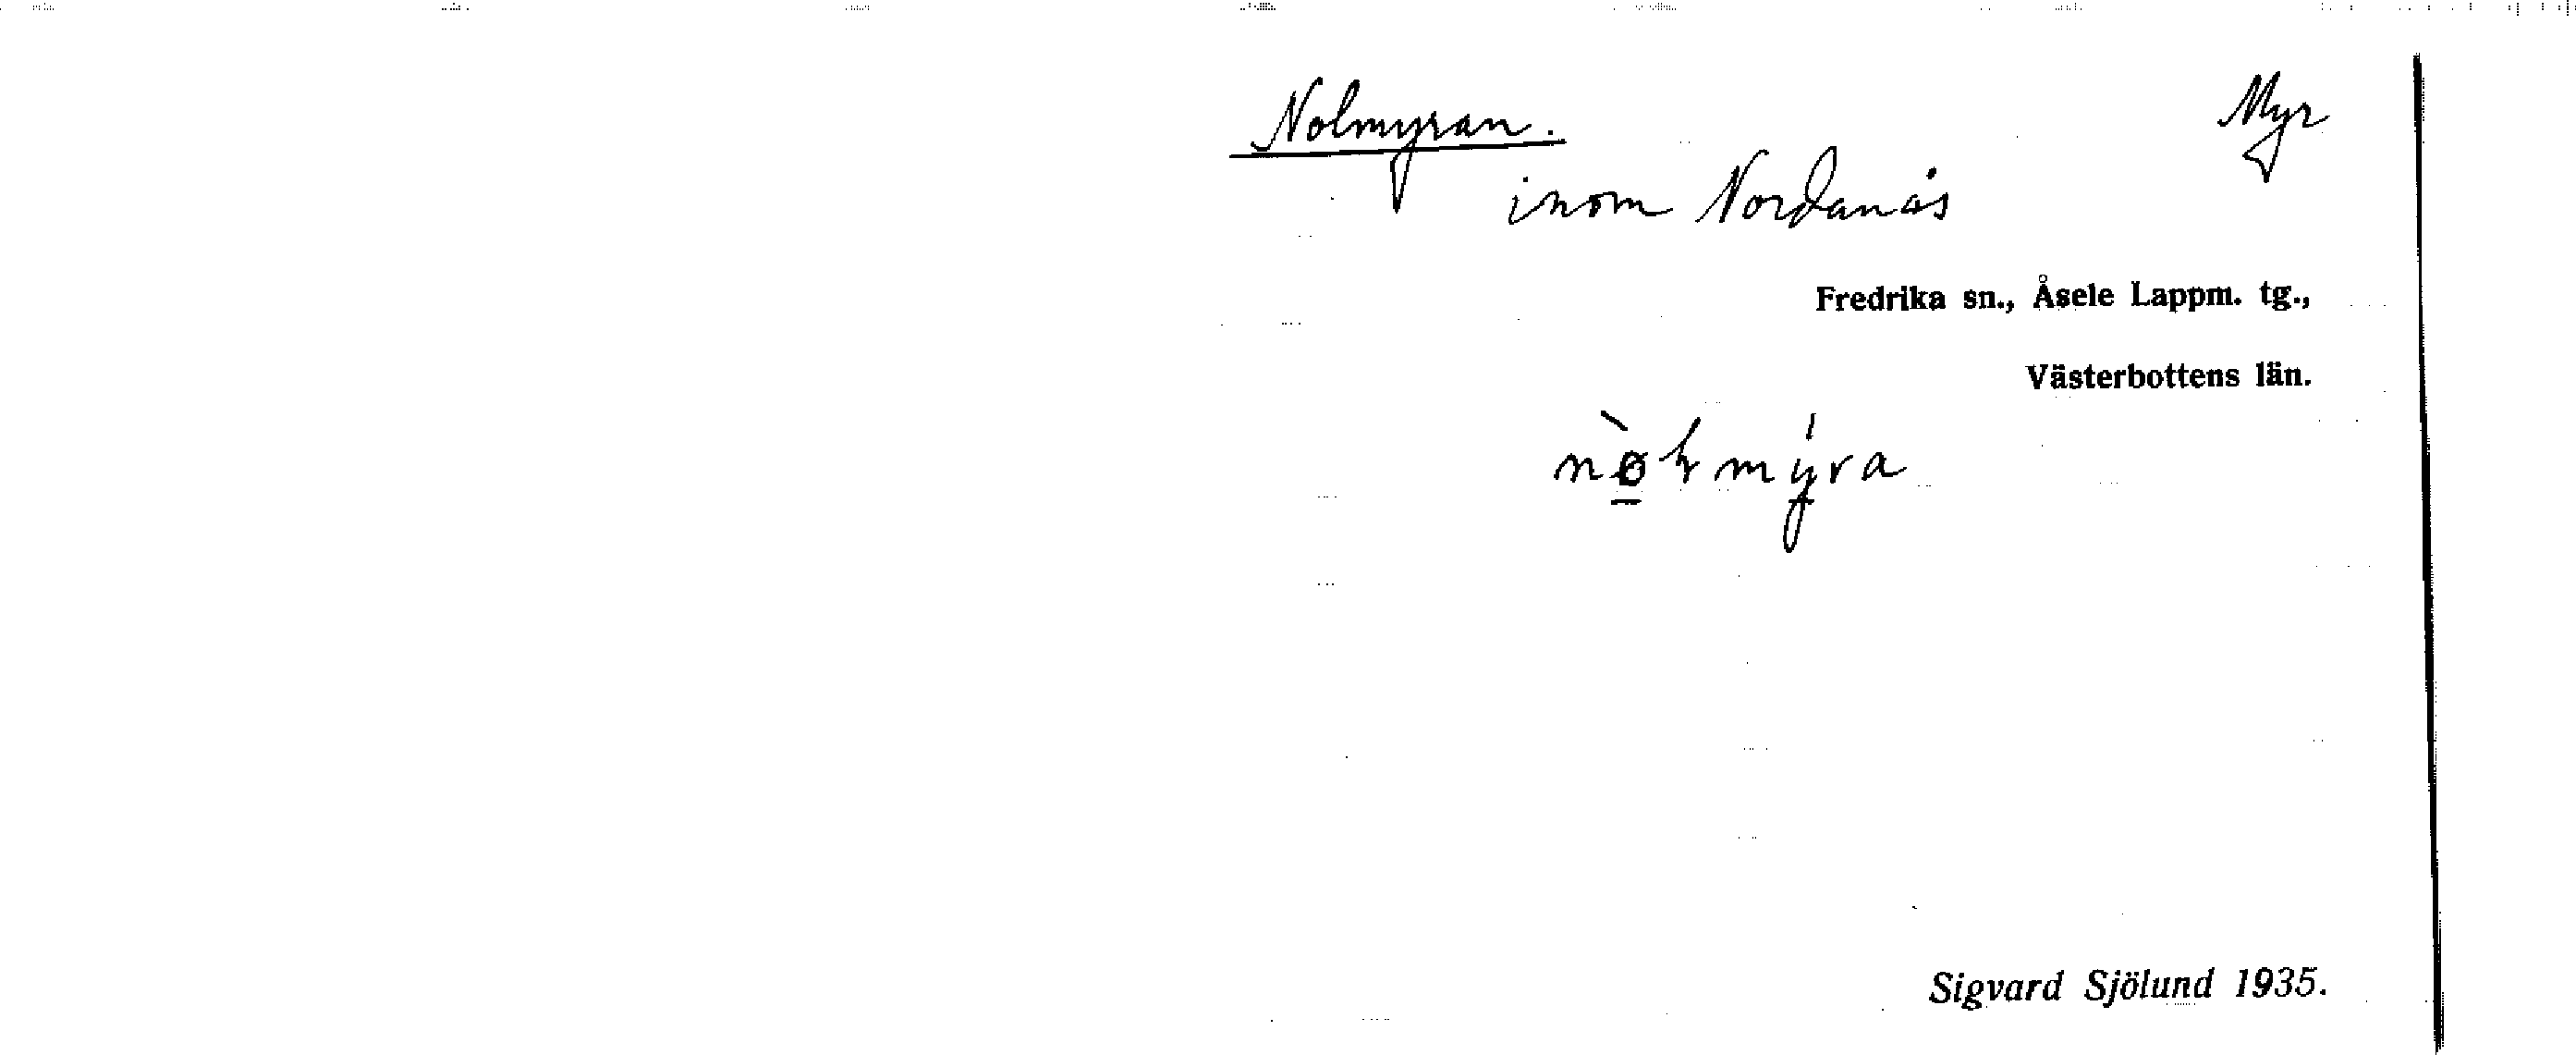 Nolmyran. Myr
inom Nordanås
Fredrika sn., Åsele Lappm. tg.,
Västerbottens län.
Sigvard Sjölund 1935.